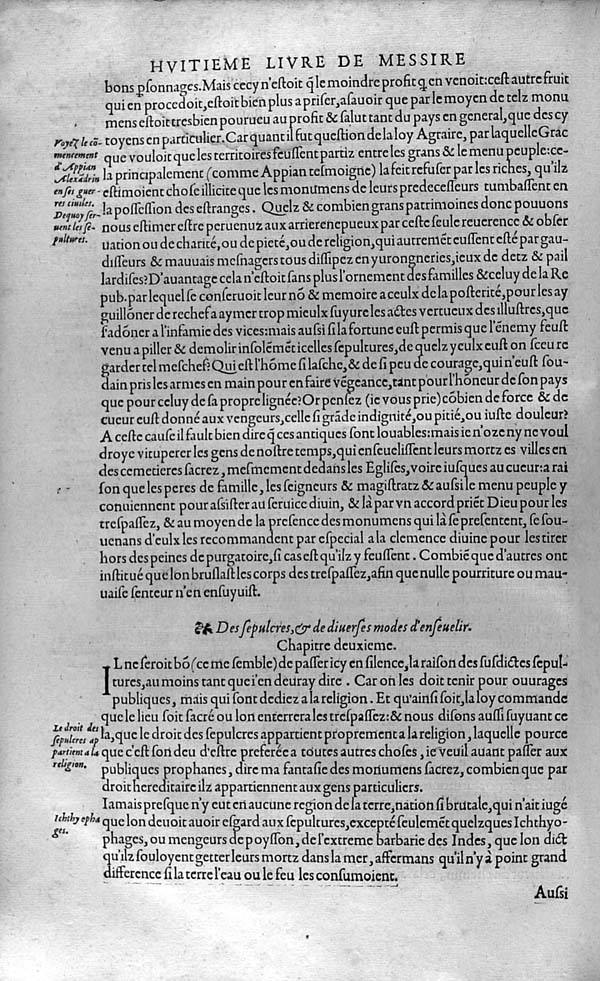 HVITIEME LIVRE DE MESSIRE
bons psonnages. Mais cecy n'estoit q̄ le moindre profit q̄ en venoit: cest autre fruit
qui en procedoit, estoit bien plus a priser, asauoir que par le moyen de telz monu
mens estoit tresbien pourueu au profit & salut tant du pays en general, que des cy
toyens en particulier. Car quant il fut question de la loy Agraire, par laquelle Grac
que vouloit que les territoires feussent partiz entre les grans & le menu peuple: ce-
la principalement (comme Appian tesmoigne) la feit refuser par les riches, qu'ilz
estimoient chose illicite que les monumens de leurs predecesseurs tumbassent en
la possession des estranges. Quelz & combien grans patrimoines donc pouuons
nous estimer estre peruenuz aux arrierenepueux par ceste seule reuerence & obser
uation ou de charité, ou de pieté, ou de religion, qui autremēt eussent esté par gau-
disseurs & mauuais mesnagers tous dissipez en yurongneries, ieux de detz & pail
lardises? D'auantage cela n'estoit sans plus l'ornement des familles & celuy de la Re
pub. par lequel se conseruoit leur nō & memoire a ceulx de la posterité, pour les ay
guillōner de rechef a aymer trop mieulx suyure les actes vertueux des illustres, que
s'adōner a l'infamie des vices: mais aussi si la fortune eust permis que l'ēnemy feust
venu a piller & demolir insolēmēt icelles sepultures, de quelz yeulx eust on sceu re
garder tel meschef? Qui est l'hōme si lasche, & de si peu de courage, qui n'eust sou-
dain pris les armes en main pour en faire vēgeance, tant pour l'hōneur de son pays
que pour celuy de sa propre lignée? Or pensez (ie vous prie) cōbien de force & de
cueur eust donné aux vengeurs, celle si grāde indignité, ou pitié, ou iuste douleur?
A ceste cause il fault bien dire q̄ ces antiques sont louables: mais ie n'oze ny ne voul
droye vituperer les gens de nostre temps, qui enseuelissent leurs mortz es villes en
des cemetieres sacrez, mesmement dedans les Eglises, voire iusques au cueur: a rai
son que les peres de famille, les seigneurs & magistratz & aussi le menu peuple y
conuiennent pour assister au seruice diuin, & là par vn accord priēt Dieu pour les
trespassez, & au moyen de la presence des monumens qui là se presentent, se sou-
uenans d'eulx les recommandent par especial a la clemence diuine pour les tirer
hors des peines de purgatoire, si cas est qu'ilz y feussent. Combiē que d'autres ont
institué que lon bruslast les corps des trespassez, afin que nulle pourriture ou mau-
uaise senteur n'en ensuyuist.
Voyez le cō-
mencement
d'Appian
Alexādrin
en ses guer-
res ciuiles.
Dequoy ser-
uent les se-
pultures.
Des sepulcres, & de diuerses modes d'enseuelir.
Chapitre deuxieme.
IL ne seroit bō (ce me semble) de passer icy en silence, la raison des susdictes sepul-
tures, au moins tant que i'en deuray dire. Car on les doit tenir pour ouurages
publiques, mais qui sont dediez a la religion. Et qu'ainsi soit, la loy commande
que le lieu soit sacré ou lon enterrera les trespassez: & nous disons aussi suyuant ce
la, que le droit des sepulcres appartient proprement a la religion, laquelle pource
que c'est son deu d'estre preferée a toutes autres choses, ie veuil auant passer aux
publiques prophanes, dire ma fantasie des monumens sacrez, combien que par
droit hereditaire ilz appartiennent aux gens particuliers.
Le droit des
sepulcres ap
partient a la
religion.
Iamais presque n'y eut en aucune region de la terre, nation si brutale, qui n'ait iugé
que lon deuoit auoir esgard aux sepultures, excepté seulemēt quelzques Ichthyo-
phages, ou mengeurs de poysson, de l'extreme barbarie des Indes, que lon dict
qu'ilz souloyent getter leurs mortz dans la mer, affermans qu'il n'y à point grand
difference si la terre l'eau ou le feu les consumoient.
Ichthyopha
ges.
Aussi